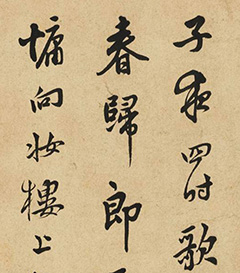 子夜四時歌
春歸郎
慵向妝樓上